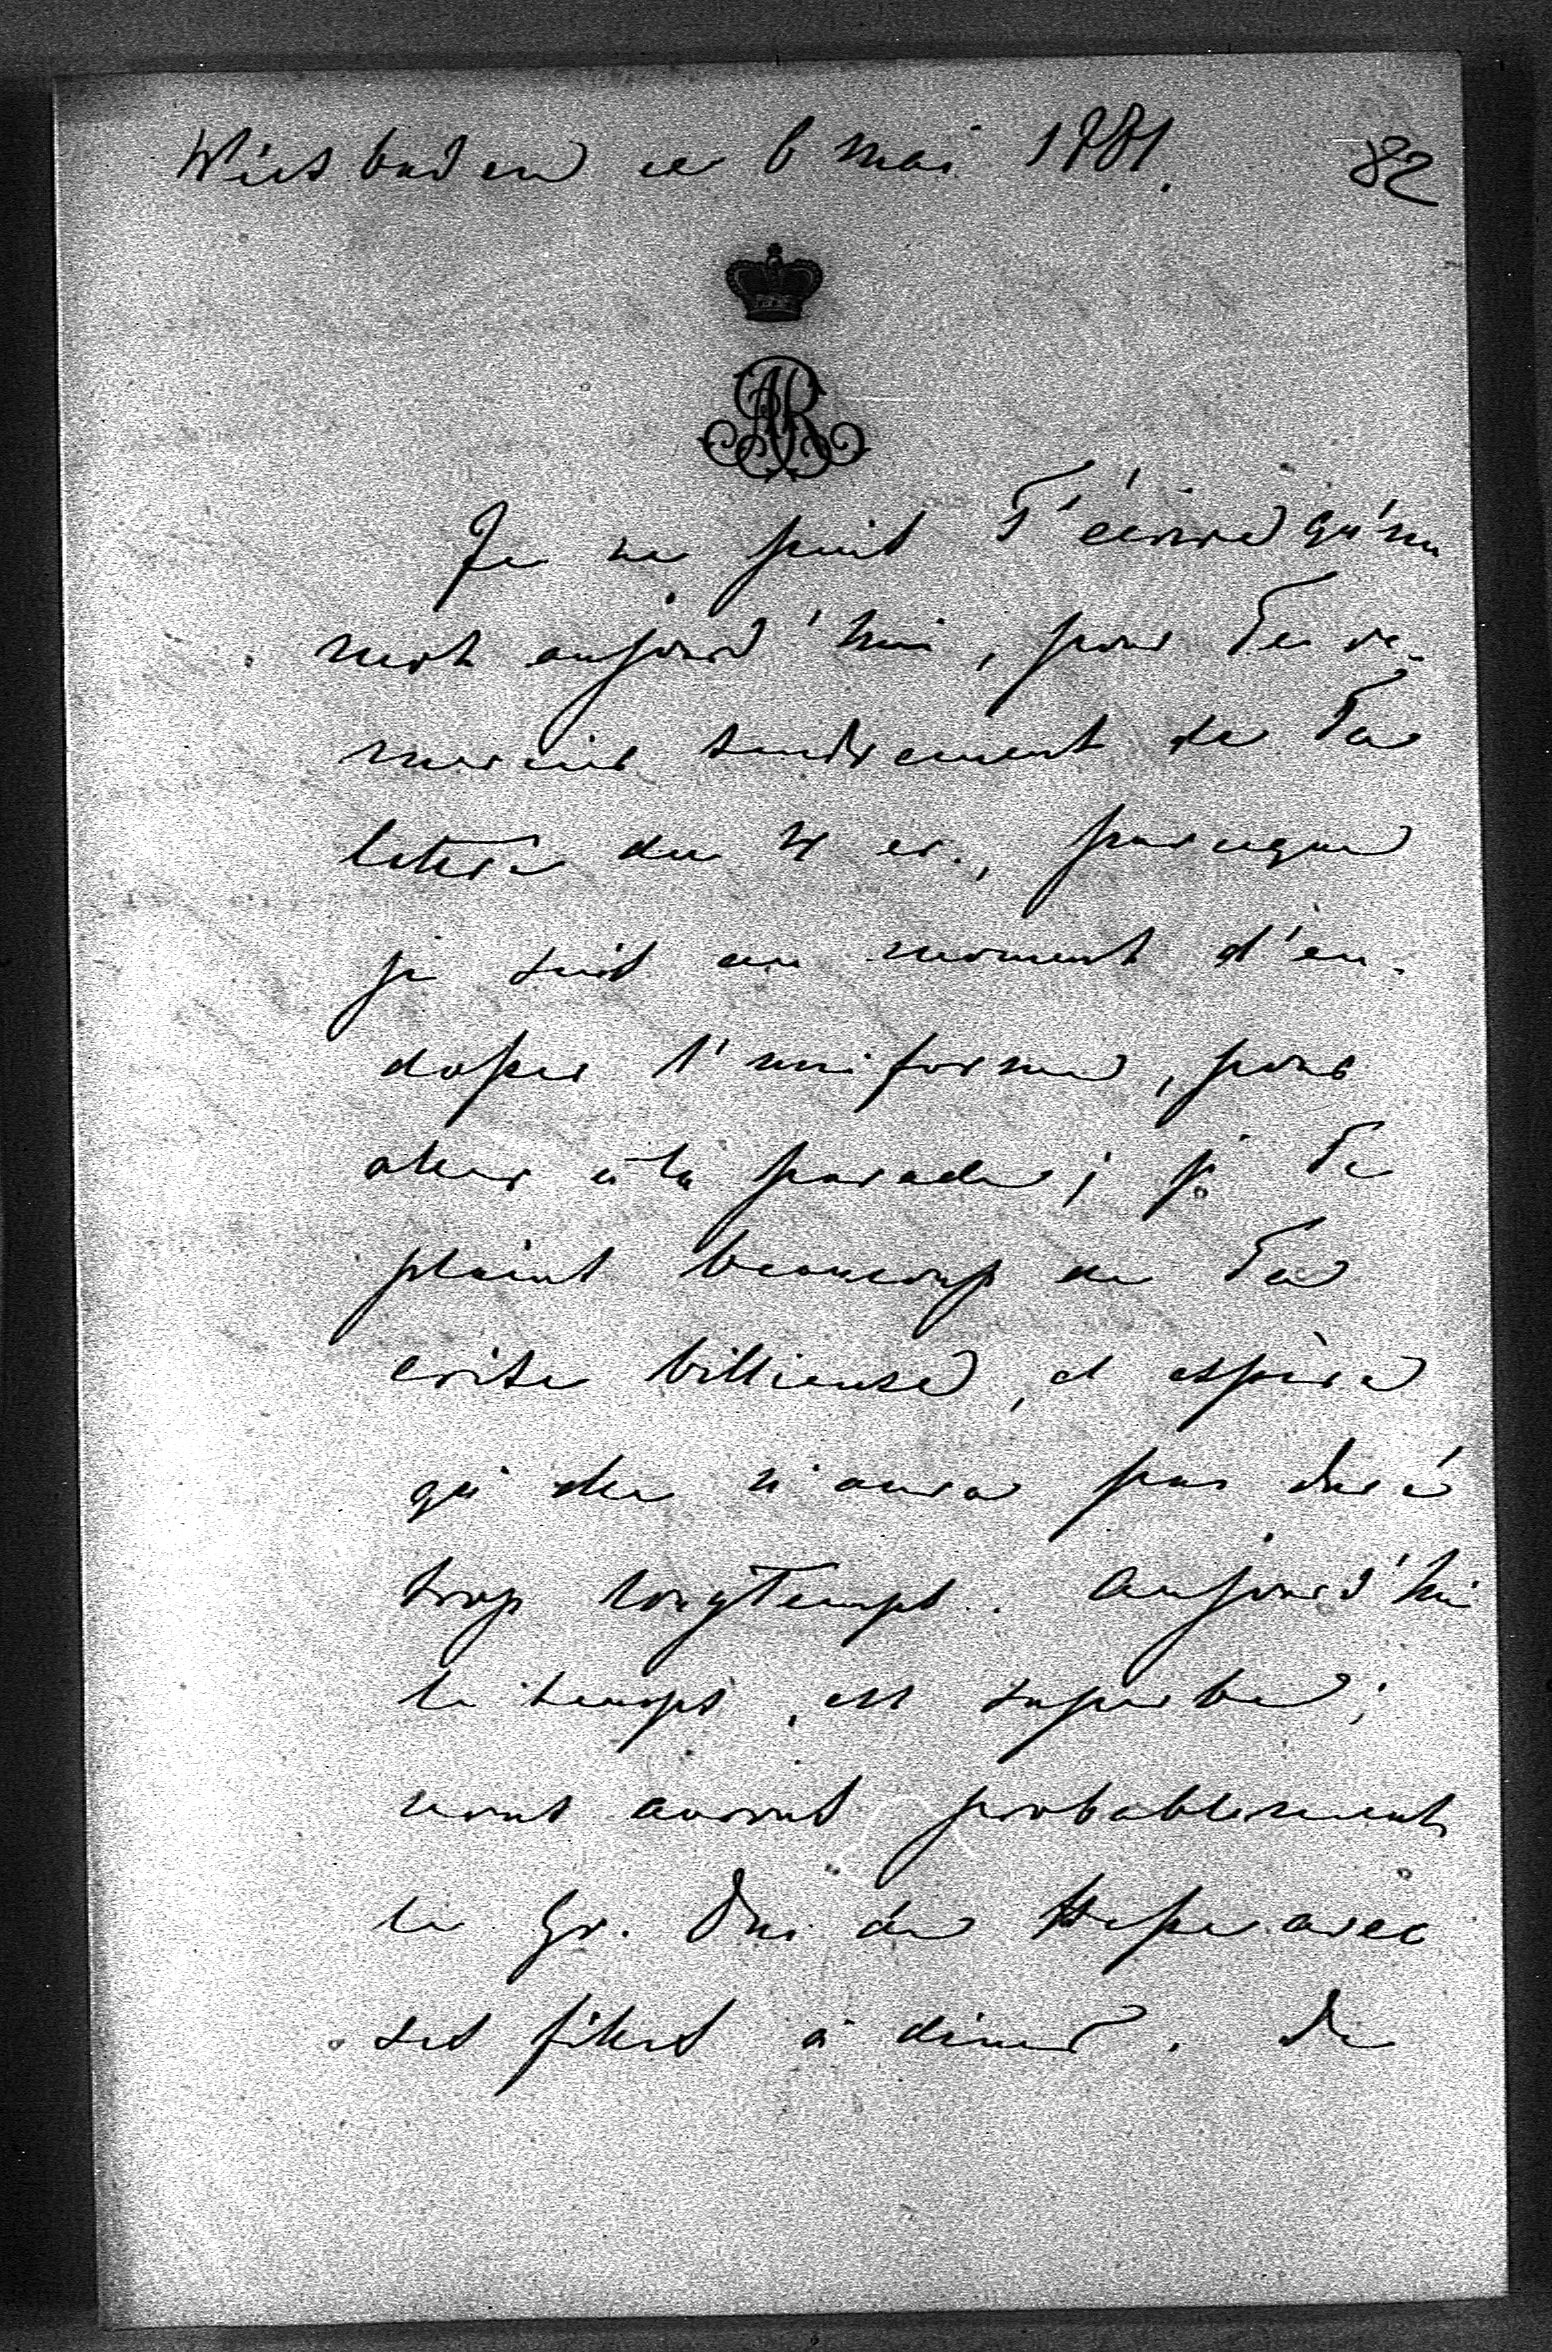 Wiesbaden ce 6 mai 1881.
82
AR
Je ne puis T'écrire qu'un
mot aujourd'hui, pour Te re-
mercier tendrement de Ta
lettre du 4 er., parceque
je suis au moment d'en-
dosser l'uniforme, pour
aller à la parade; je Te
plains beaucoup de Ta
crise billieuse, et espère
qu'elle n'aura pas duré
trop longtemps. Aujourd'hui
le temps est superbe;
nous aurons probablement
le Gr. Duc de Hesse avec
ses filles à diner. De